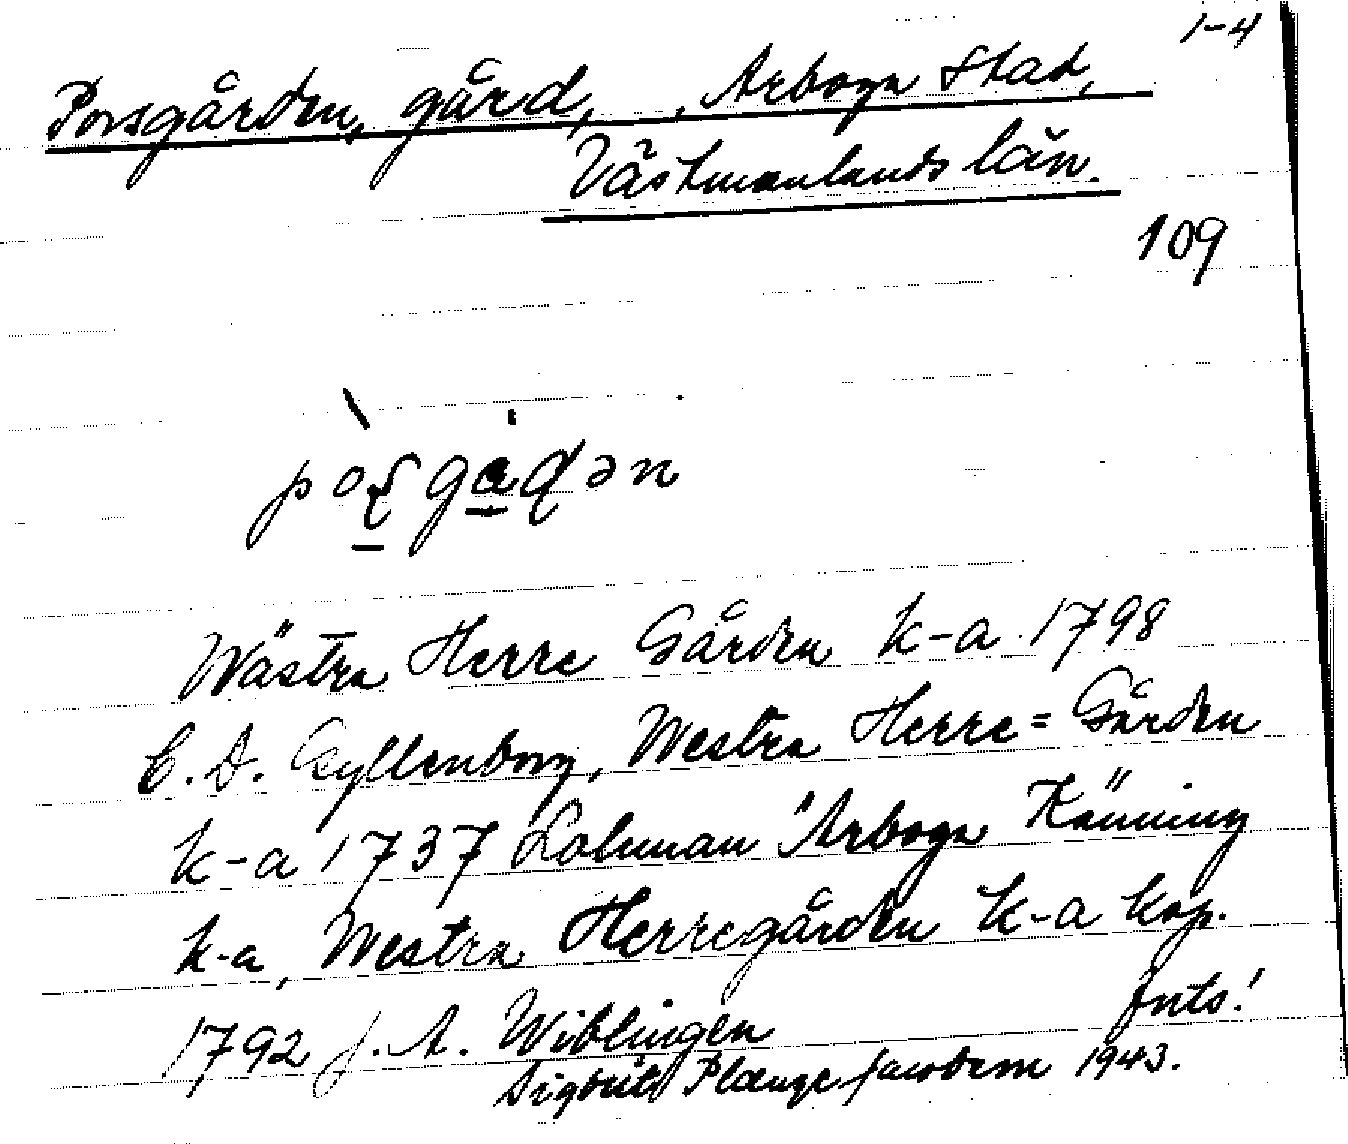 1-4
Porsgården, gård, , Arboga Stad,
Västmanlands län.
109
Wästra Herre Gården k-a 1798
C. D. Gyllenborg, Westra Herre=Gården
k-a 1737 Lohman Arboga Känning
k-a, Westra Herregården k-a kop.
1792 J. A. Wiblingen forts!
Plænge Jacobson 1943.